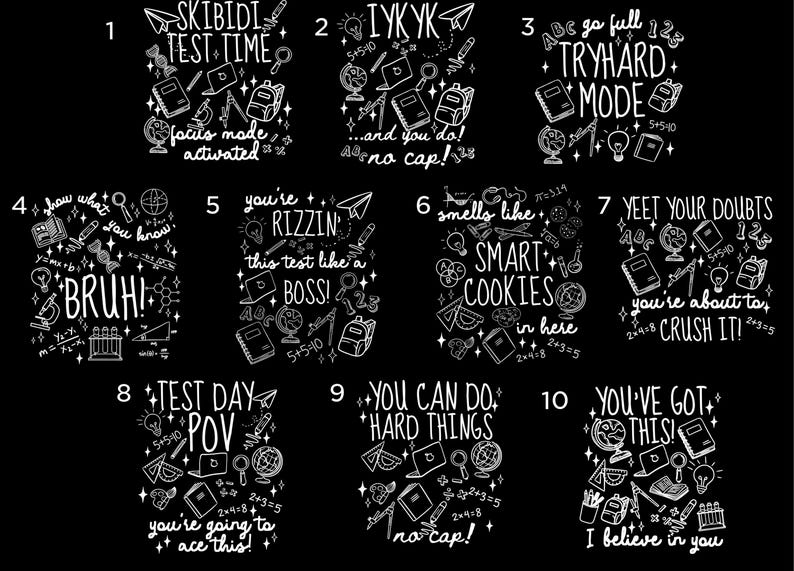 1
SKIBIDI
TEST TIME
focus mode
activated
2
IYKYK
5+5=10
...and you do!
ABC
no cap!
123
3
ABC
go full
123
TRYHARD
MODE
5+5=10
4
show what
you know,
y=mx+b
BRUH!
sin(θ)=
5
you're
RIZZIN'
this test like a
BOSS!
ABC
123
5+5=10
6
π=3.14
smells like
ABC
SMART
COOKIES
in here
2x4=8
2+3=5
7
YEET YOUR DOUBTS
ABC
123
5+5=10
you're about to
2x4=8
CRUSH IT!
2+3=5
8
TEST DAY
POV
5+5=10
2x4=8
2+3=5
you're going to
ace this!
9
YOU CAN DO
HARD THINGS
2+3=5
2x4=8
no cap!
10
YOU'VE GOT
THIS!
I believe in you